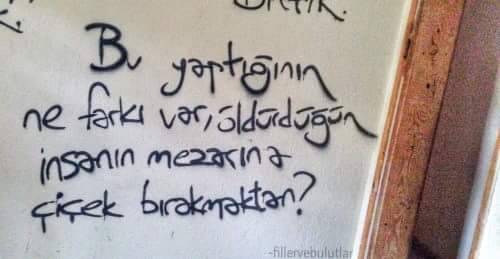 Bu yaptığının
ne farkı var, öldürdüğün
insanın mezarına
çiçek bırakmaktan?
-fillervebulutlar